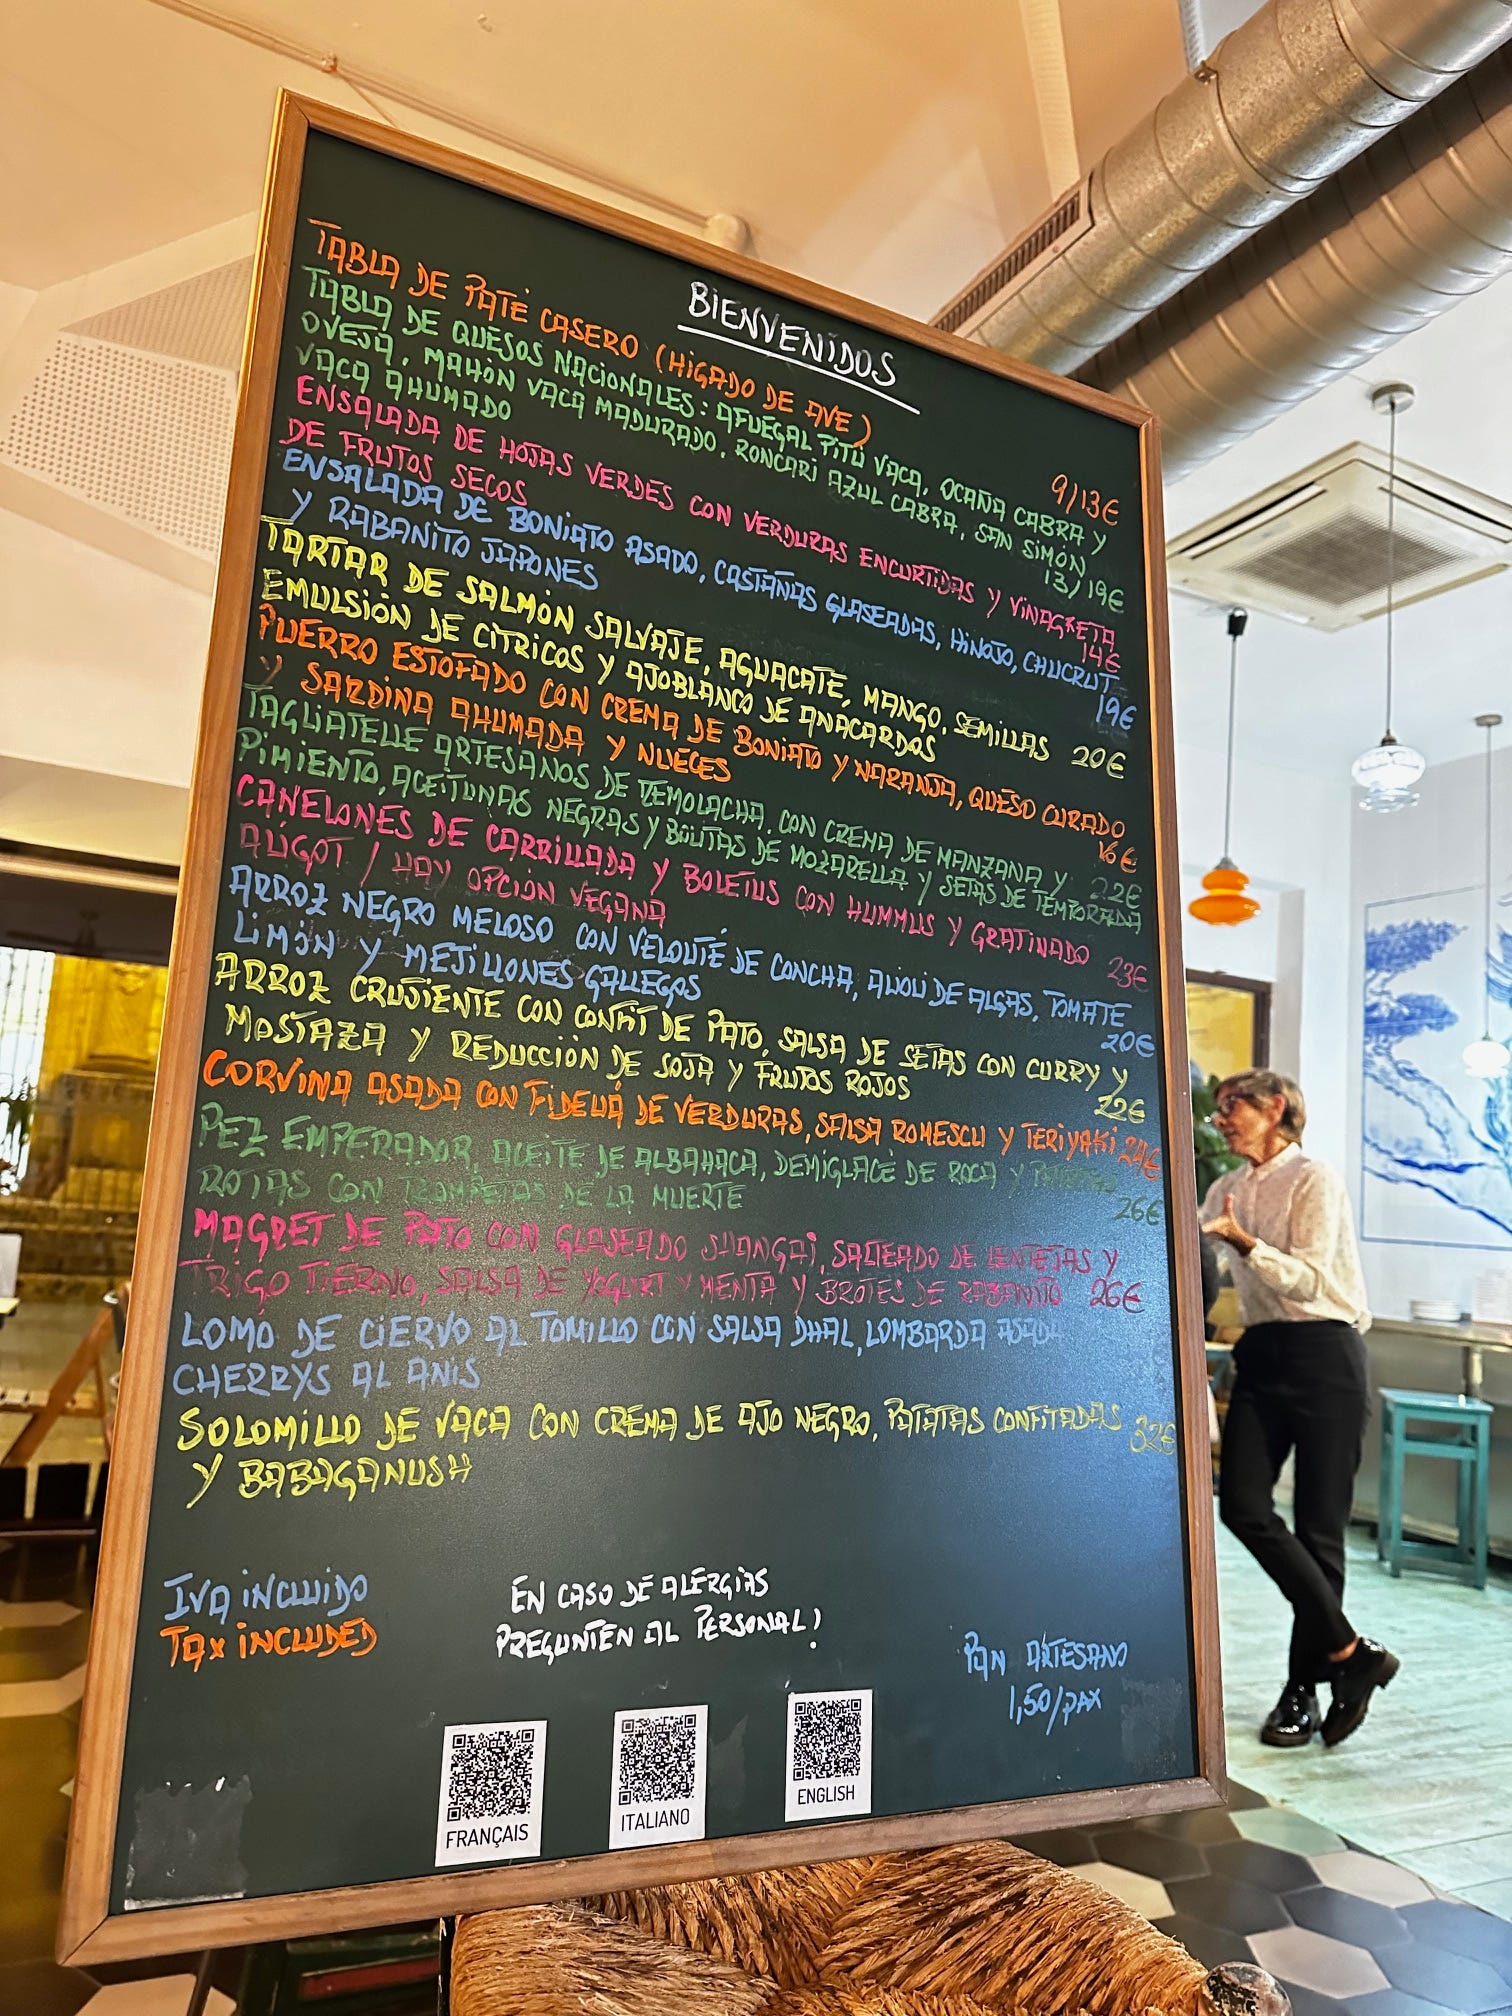 BIENVENIDOS
TABLA DE PATÉ CASERO (HIGADO DE AVE) 9/13€
TABLA DE QUESOS NACIONALES: AFUEGAL PITU VACA, OCAÑA CABRA Y
OVEJA, MAHÓN VACA MADURADO, RONCARI AZUL CABRA, SAN SIMÓN
VACA AHUMADO 13/19€
ENSALADA DE HOJAS VERDES CON VERDURAS ENCURTIDAS Y VINAGRETA
DE FRUTOS SECOS 14€
ENSALADA DE BONIATO ASADO, CASTAÑAS GLASEADAS, HINOJO, CHUCRUT
Y RABANITO JAPONES 19€
TARTAR DE SALMÓN SALVAJE, AGUACATE, MANGO, SEMILLAS 20€
EMULSIÓN DE CITRICOS Y AJOBLANCO DE ANACARDOS
PUERRO ESTOFADO CON CREMA DE BONIATO Y NARANJA, QUESO CURADO
Y SARDINA AHUMADA Y NUECES 16€
TAGLIATELLE ARTESANOS DE REMOLACHA, CON CREMA DE MANZANA Y 22€
PIMIENTO, ACEITUNAS NEGRAS Y BOLITAS DE MOZARELLA Y SETAS DE TEMPORADA
CANELONES DE CARRILLADA Y BOLETUS CON HUMMUS Y GRATINADO 23€
ALIGOT / HAY OPCIÓN VEGANA
ARROZ NEGRO MELOSO CON VELOUTÉ DE CONCHA, ALIOLI DE ALGAS, TOMATE
LIMÓN Y MEJILLONES GALLEGOS 20€
ARROZ CRUJIENTE CON CONFIT DE PATO, SALSA DE SETAS CON CURRY Y
MOSTAZA Y REDUCCIÓN DE SOJA Y FRUTOS ROJOS 22€
CORVINA ASADA CON FIDEUÁ DE VERDURAS, SALSA ROMESCU Y TERIYAKI 24€
PEZ EMPERADOR, ACEITE DE ALBAHACA, DEMIGLACÉ DE ROCA Y PATATAS
ROJAS CON TROMPETAS DE LA MUERTE 26€
MAGRET DE PATO CON GLASEADO SHANGAI, SALTEADO DE LENTEJAS Y
TRIGO TIERNO, SALSA DE YOGURT Y MENTA Y BROTES DE RABANITO 26€
LOMO DE CIERVO AL TOMILLO CON SALSA DHAL, LOMBARDA ASADA
CHERRYS AL ANIS
SOLOMILLO DE VACA CON CREMA DE AJO NEGRO, PATATAS CONFITADAS 32€
Y BABAGANUSH
IVA INCLUIDO
TAX INCLUDED
EN CASO DE ALERGIAS
PREGUNTEN AL PERSONAL!
PAN ARTESANO
1,50/PAX
FRANÇAIS
ITALIANO
ENGLISH